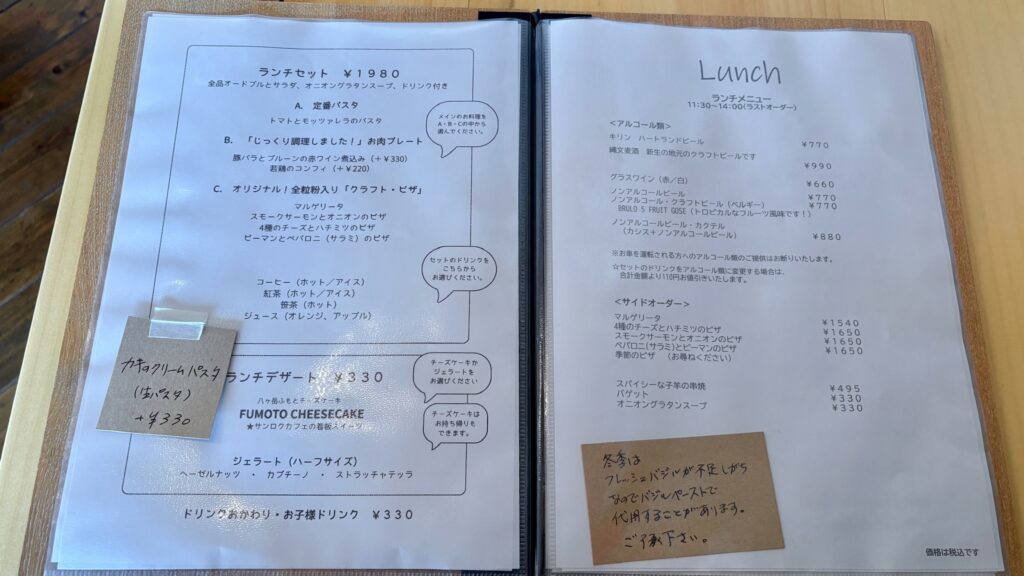 ランチセット ￥1980
全品オードブルとサラダ、オニオングラタンスープ、ドリンク付き
A. 定番パスタ
トマトとモッツァレラのパスタ
メインのお料理を
A・B・Cの中から
選んでください。
B. 「じっくり調理しました！」お肉プレート
豚バラとプルーンの赤ワイン煮込み（＋￥330）
若鶏のコンフィ（＋￥220）
C. オリジナル！全粒粉入り「クラフト・ピザ」
マルゲリータ
スモークサーモンとオニオンのピザ
4種のチーズとハチミツのピザ
ピーマンとペパロニ（サラミ）のピザ
セットのドリンクを
こちらから
お選びください。
コーヒー（ホット／アイス）
紅茶（ホット／アイス）
笹茶（ホット）
ジュース（オレンジ、アップル）
カキのクリームパスタ
(生パスタ)
+￥330
ランチデザート ￥330
チーズケーキか
ジェラートを
お選びください
八ヶ岳ふもとチーズケーキ
FUMOTO CHEESECAKE
★サンロクカフェの看板スイーツ
チーズケーキは
お持ち帰りも
できます。
ジェラート（ハーフサイズ）
ヘーゼルナッツ ・ カプチーノ ・ ストラッチャテッラ
ドリンクおかわり・お子様ドリンク ￥330
Lunch
ランチメニュー
11:30~14:00(ラストオーダー)
<アルコール類>
キリン ハートランドビール ￥770
縄文麦酒 新生の地元のクラフトビールです
￥990
グラスワイン（赤／白） ￥660
ノンアルコールビール ￥770
ノンアルコール・クラフトビール（ベルギー） ￥770
BRULO 5 FRUIT GOSE（トロピカルなフルーツ風味です！）
ノンアルコールビール・カクテル
（カシス＋ノンアルコールビール） ￥880
※お車を運転される方へのアルコール類のご提供はお断りいたします。
☆セットのドリンクをアルコール類に変更する場合は、
合計金額より110円お値引きいたします。
<サイドオーダー>
マルゲリータ ￥1540
4種のチーズとハチミツのピザ ￥1650
スモークサーモンとオニオンのピザ ￥1650
ペパロニ(サラミ)とピーマンのピザ ￥1650
季節のピザ （お尋ねください）
スパイシーな子羊の串焼 ￥495
バゲット ￥330
オニオングラタンスープ ￥330
冬季は
フレッシュバジルが不足しがち
なのでバジルペーストで
代用することがあります。
ご了承下さい。
価格は税込です